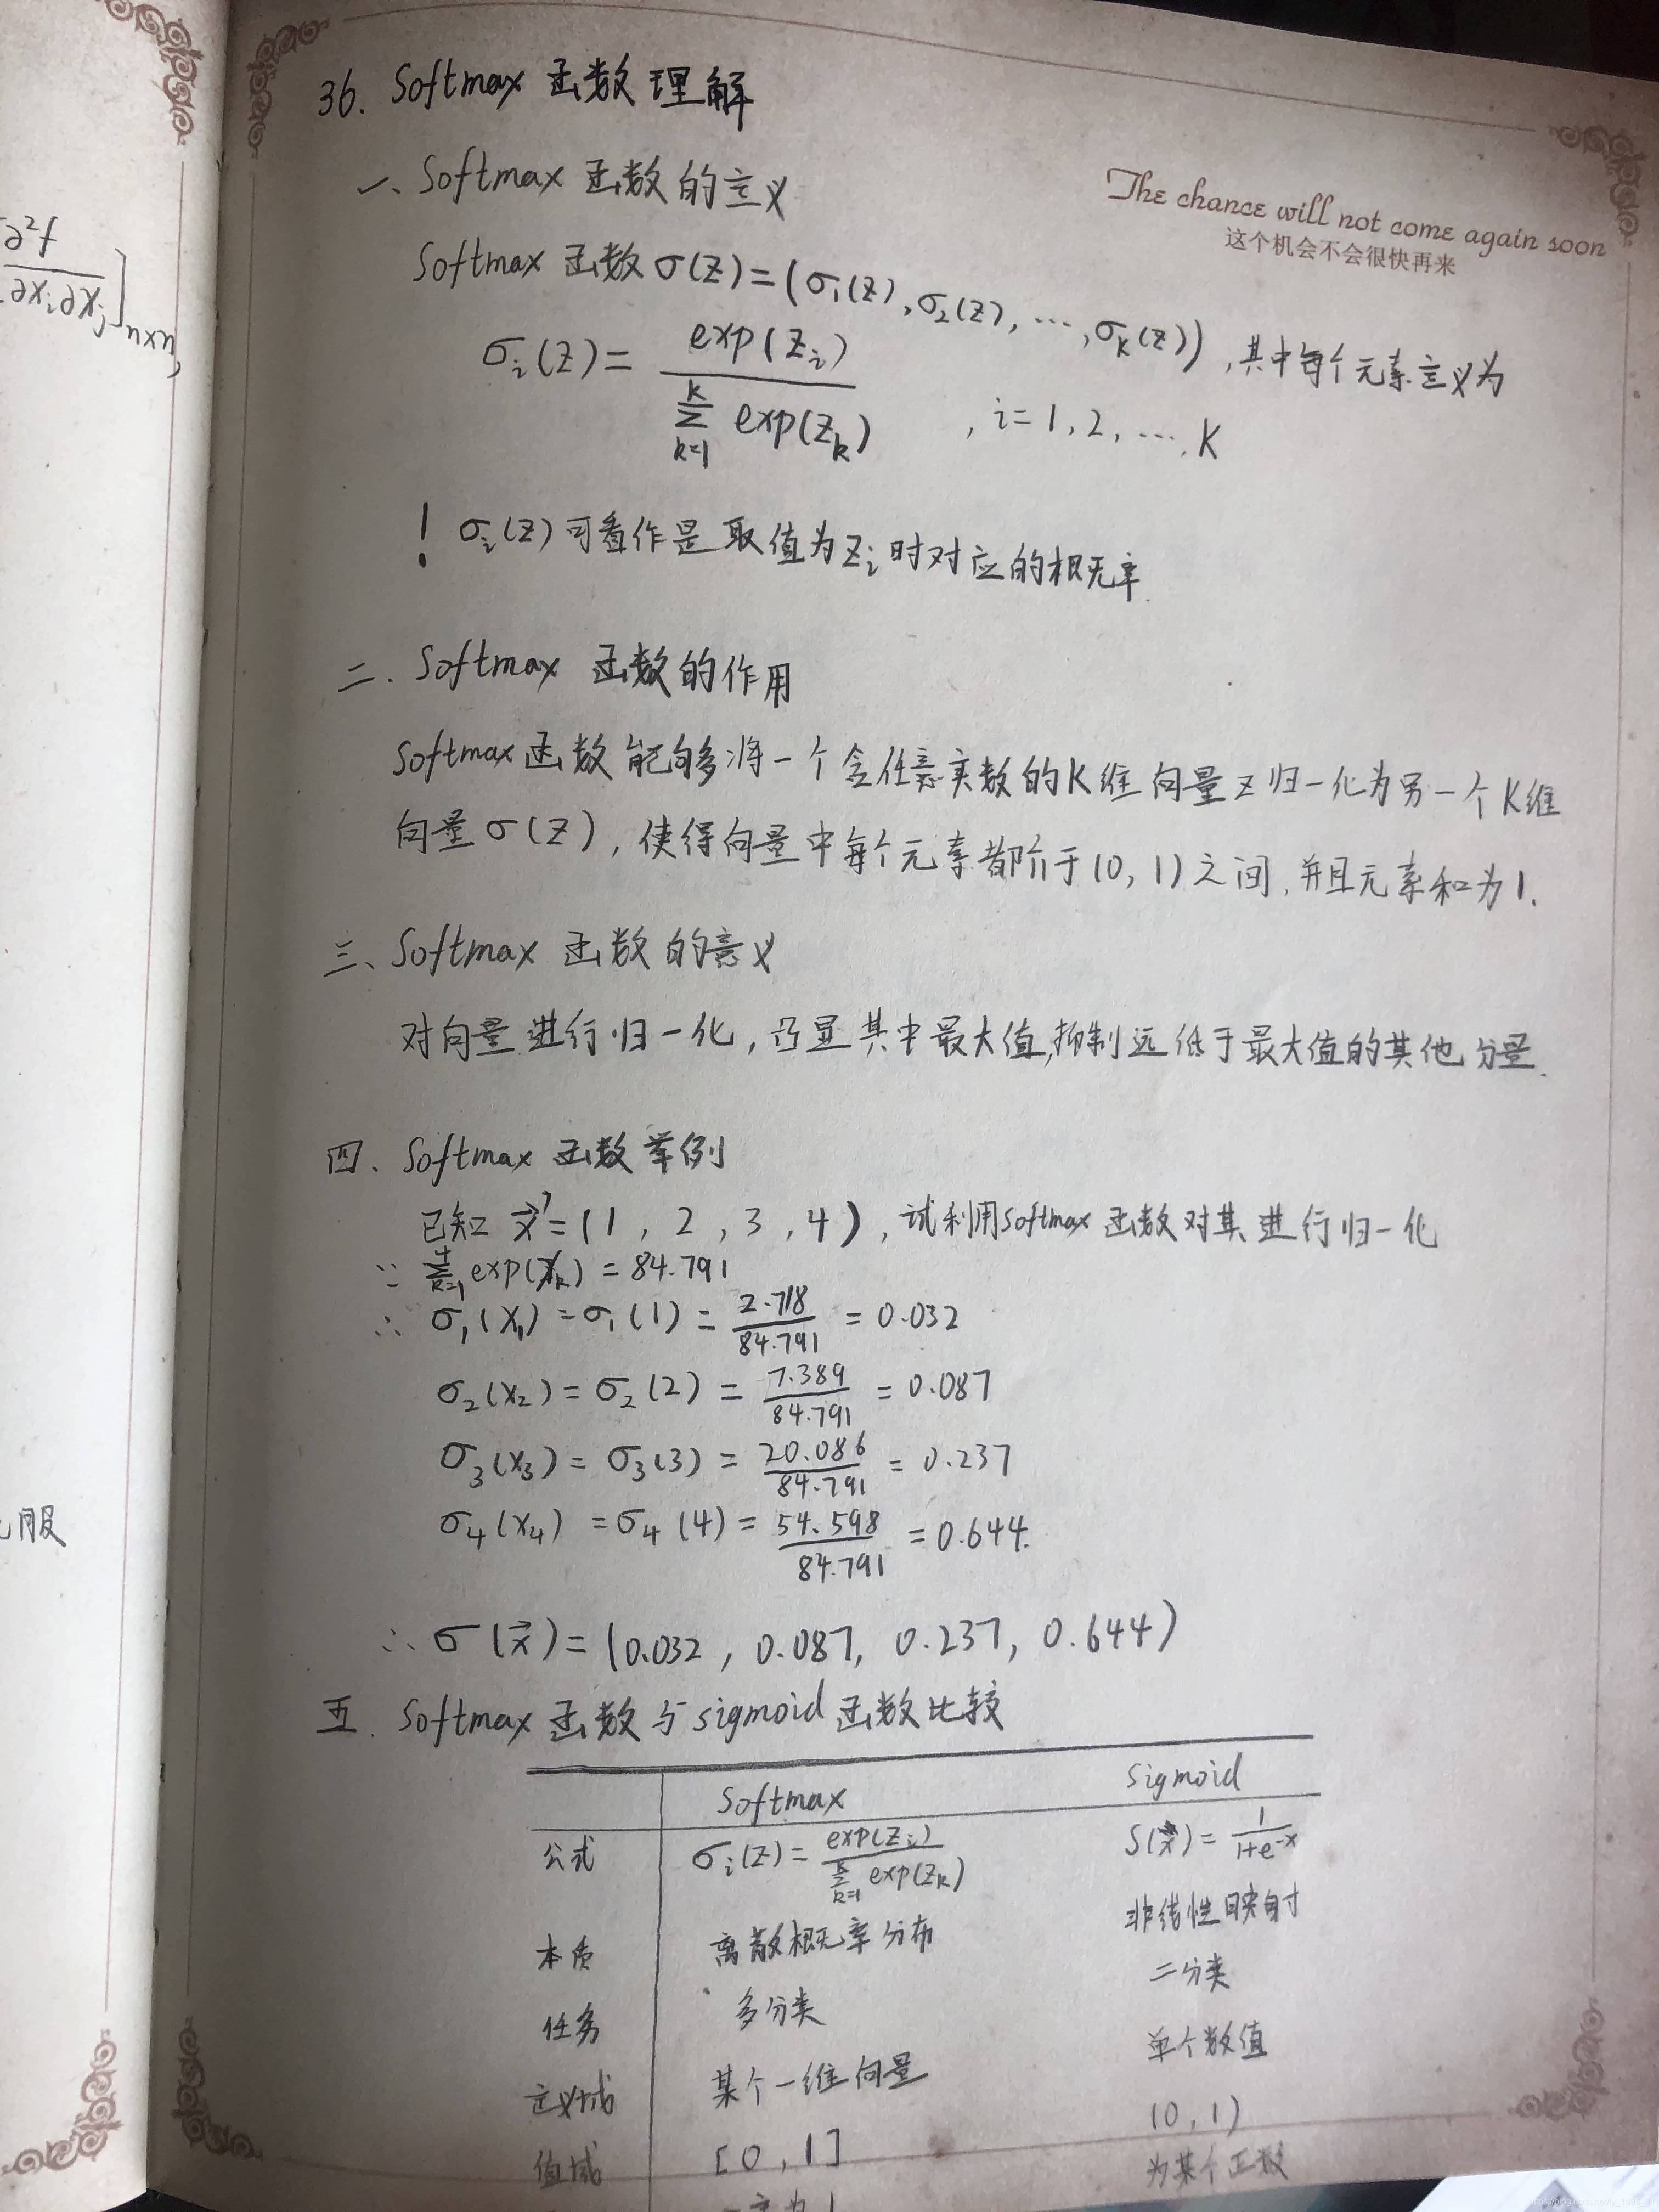 ∂²f
∂xᵢ∂xⱼ ]n×n,
服
36. Softmax 函数理解
The chance will not come again soon
这个机会不会很快再来
一、Softmax 函数的定义
Softmax 函数 σ(z)=(σ₁(z),σ₂(z),…,σₖ(z)),其中每个元素定义为
σᵢ(z)= exp(zᵢ) / ∑ₖ₌₁ᴷ exp(zₖ) , i=1,2,…,K
! σᵢ(z)可看作是取值为zᵢ时对应的概率.
二. Softmax 函数的作用
Softmax函数能够将一个含任意实数的K维向量z归一化为另一个K维
向量σ(z),使得向量中每个元素都介于(0,1)之间,并且元素和为1.
三、Softmax 函数的意义
对向量进行归一化,凸显其中最大值,抑制远低于最大值的其他分量.
四、Softmax 函数举例
已知 x⃗=(1,2,3,4),试利用Softmax函数对其进行归一化
∵ ∑ₖ₌₁⁴ exp(xₖ)=84.791
∴ σ₁(x₁)=σ₁(1)= 2.718/84.791 =0.032
σ₂(x₂)=σ₂(2)= 7.389/84.791 =0.087
σ₃(x₃)=σ₃(3)= 20.086/84.791 =0.237
σ₄(x₄)=σ₄(4)= 54.598/84.791 =0.644.
∴ σ(x⃗)=(0.032,0.087,0.237,0.644)
五. Softmax 函数与sigmoid函数比较
Softmax Sigmoid
公式 σᵢ(z)= exp(zᵢ) / ∑ₖ₌₁ᴷ exp(zₖ) S(x)= 1/1+e⁻ˣ
本质 离散概率分布 非线性映射
任务 多分类 二分类
定义域 某个一维向量 单个数值
值域 [0,1] (0,1)
为某个正数